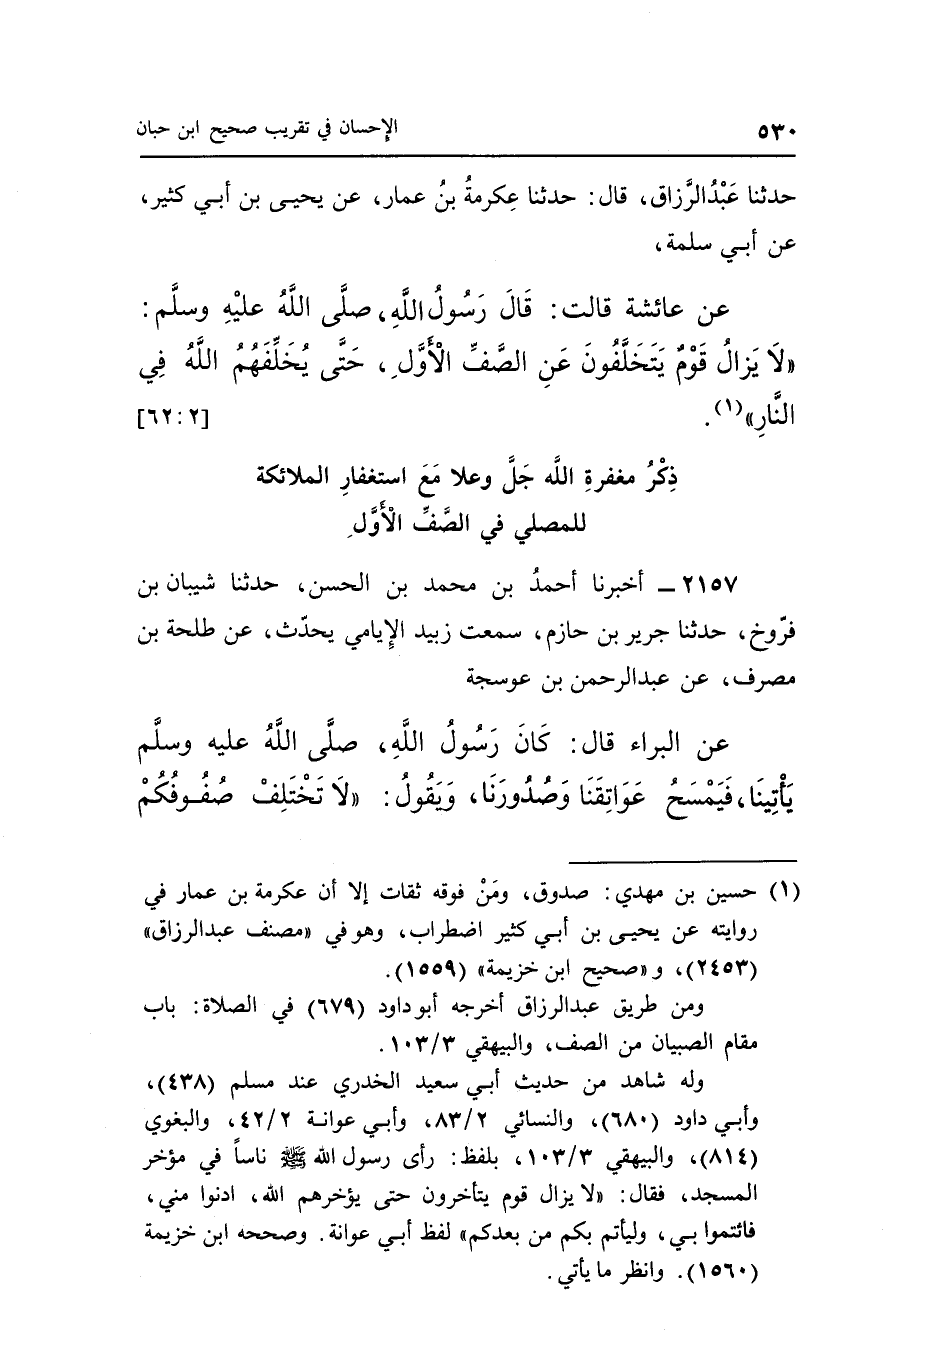 ٥٣٠ الإحسان في تقريب صحيح ابن حبان
حدثنا عَبْدُالرَّزاق، قال: حدثنا عِكرمةُ بنُ عمار، عن يحيـى بن أبـي كثير،
عن أبـي سلمة،
عن عائشة قالت: قَالَ رَسُولُ اللَّهِ، صلَّى اللَّهُ عليْهِ وسلَّم:
«لَا يَزالُ قَوْمٌ يَتَخَلَّفُونَ عَنِ الصَّفِّ الْأَوَّلِ، حَتَّى يُخَلِّفَهُمُ اللَّهُ فِي
النَّارِ»(١). [٢:٦٢]
ذِكْرُ مغفرةِ اللَّه جَلَّ وعلا مَعَ استغفارِ الملائكة
للمصلي في الصَّفِّ الْأَوَّلِ
٢١٥٧ ـ أخبرنا أحمدُ بن محمد بن الحسن، حدثنا شيبان بن
فرّوخ، حدثنا جرير بن حازم، سمعت زبيد الإيامي يحدّث، عن طلحة بن
مصرف، عن عبدالرحمن بن عوسجة
عن البراء قال: كَانَ رَسُولُ اللَّهِ، صلَّى اللَّهُ عليه وسلَّم
يَأْتِينَا، فَيَمْسَحُ عَوَاتِقَنَا وَصُدُورَنَا، وَيَقُولُ: «لَا تَخْتَلِفْ صُفُـوفُكُمْ
(١) حسين بن مهدي: صدوق، ومَنْ فوقه ثقات إلا أن عكرمة بن عمار في
روايته عن يحيـى بن أبـي كثير اضطراب، وهو في «مصنف عبدالرزاق»
(٢٤٥٣)، و«صحيح ابن خزيمة» (١٥٥٩).
ومن طريق عبدالرزاق أخرجه أبو داود (٦٧٩) في الصلاة: باب
مقام الصبيان من الصف، والبيهقي ١٠٣/٣.
وله شاهد من حديث أبـي سعيد الخدري عند مسلم (٤٣٨)،
وأبـي داود (٦٨٠)، والنسائي ٨٣/٢، وأبـي عوانـة ٤٢/٢، والبغوي
(٨١٤)، والبيهقي ١٠٣/٣، بلفظ: رأى رسول الله ﷺ ناساً في مؤخر
المسجد، فقال: «لا يزال قوم يتأخرون حتى يؤخرهم الله، ادنوا مني،
فائتموا بـي، وليأتم بكم من بعدكم» لفظ أبـي عوانة. وصححه ابن خزيمة
(١٥٦٠). وانظر ما يأتي.